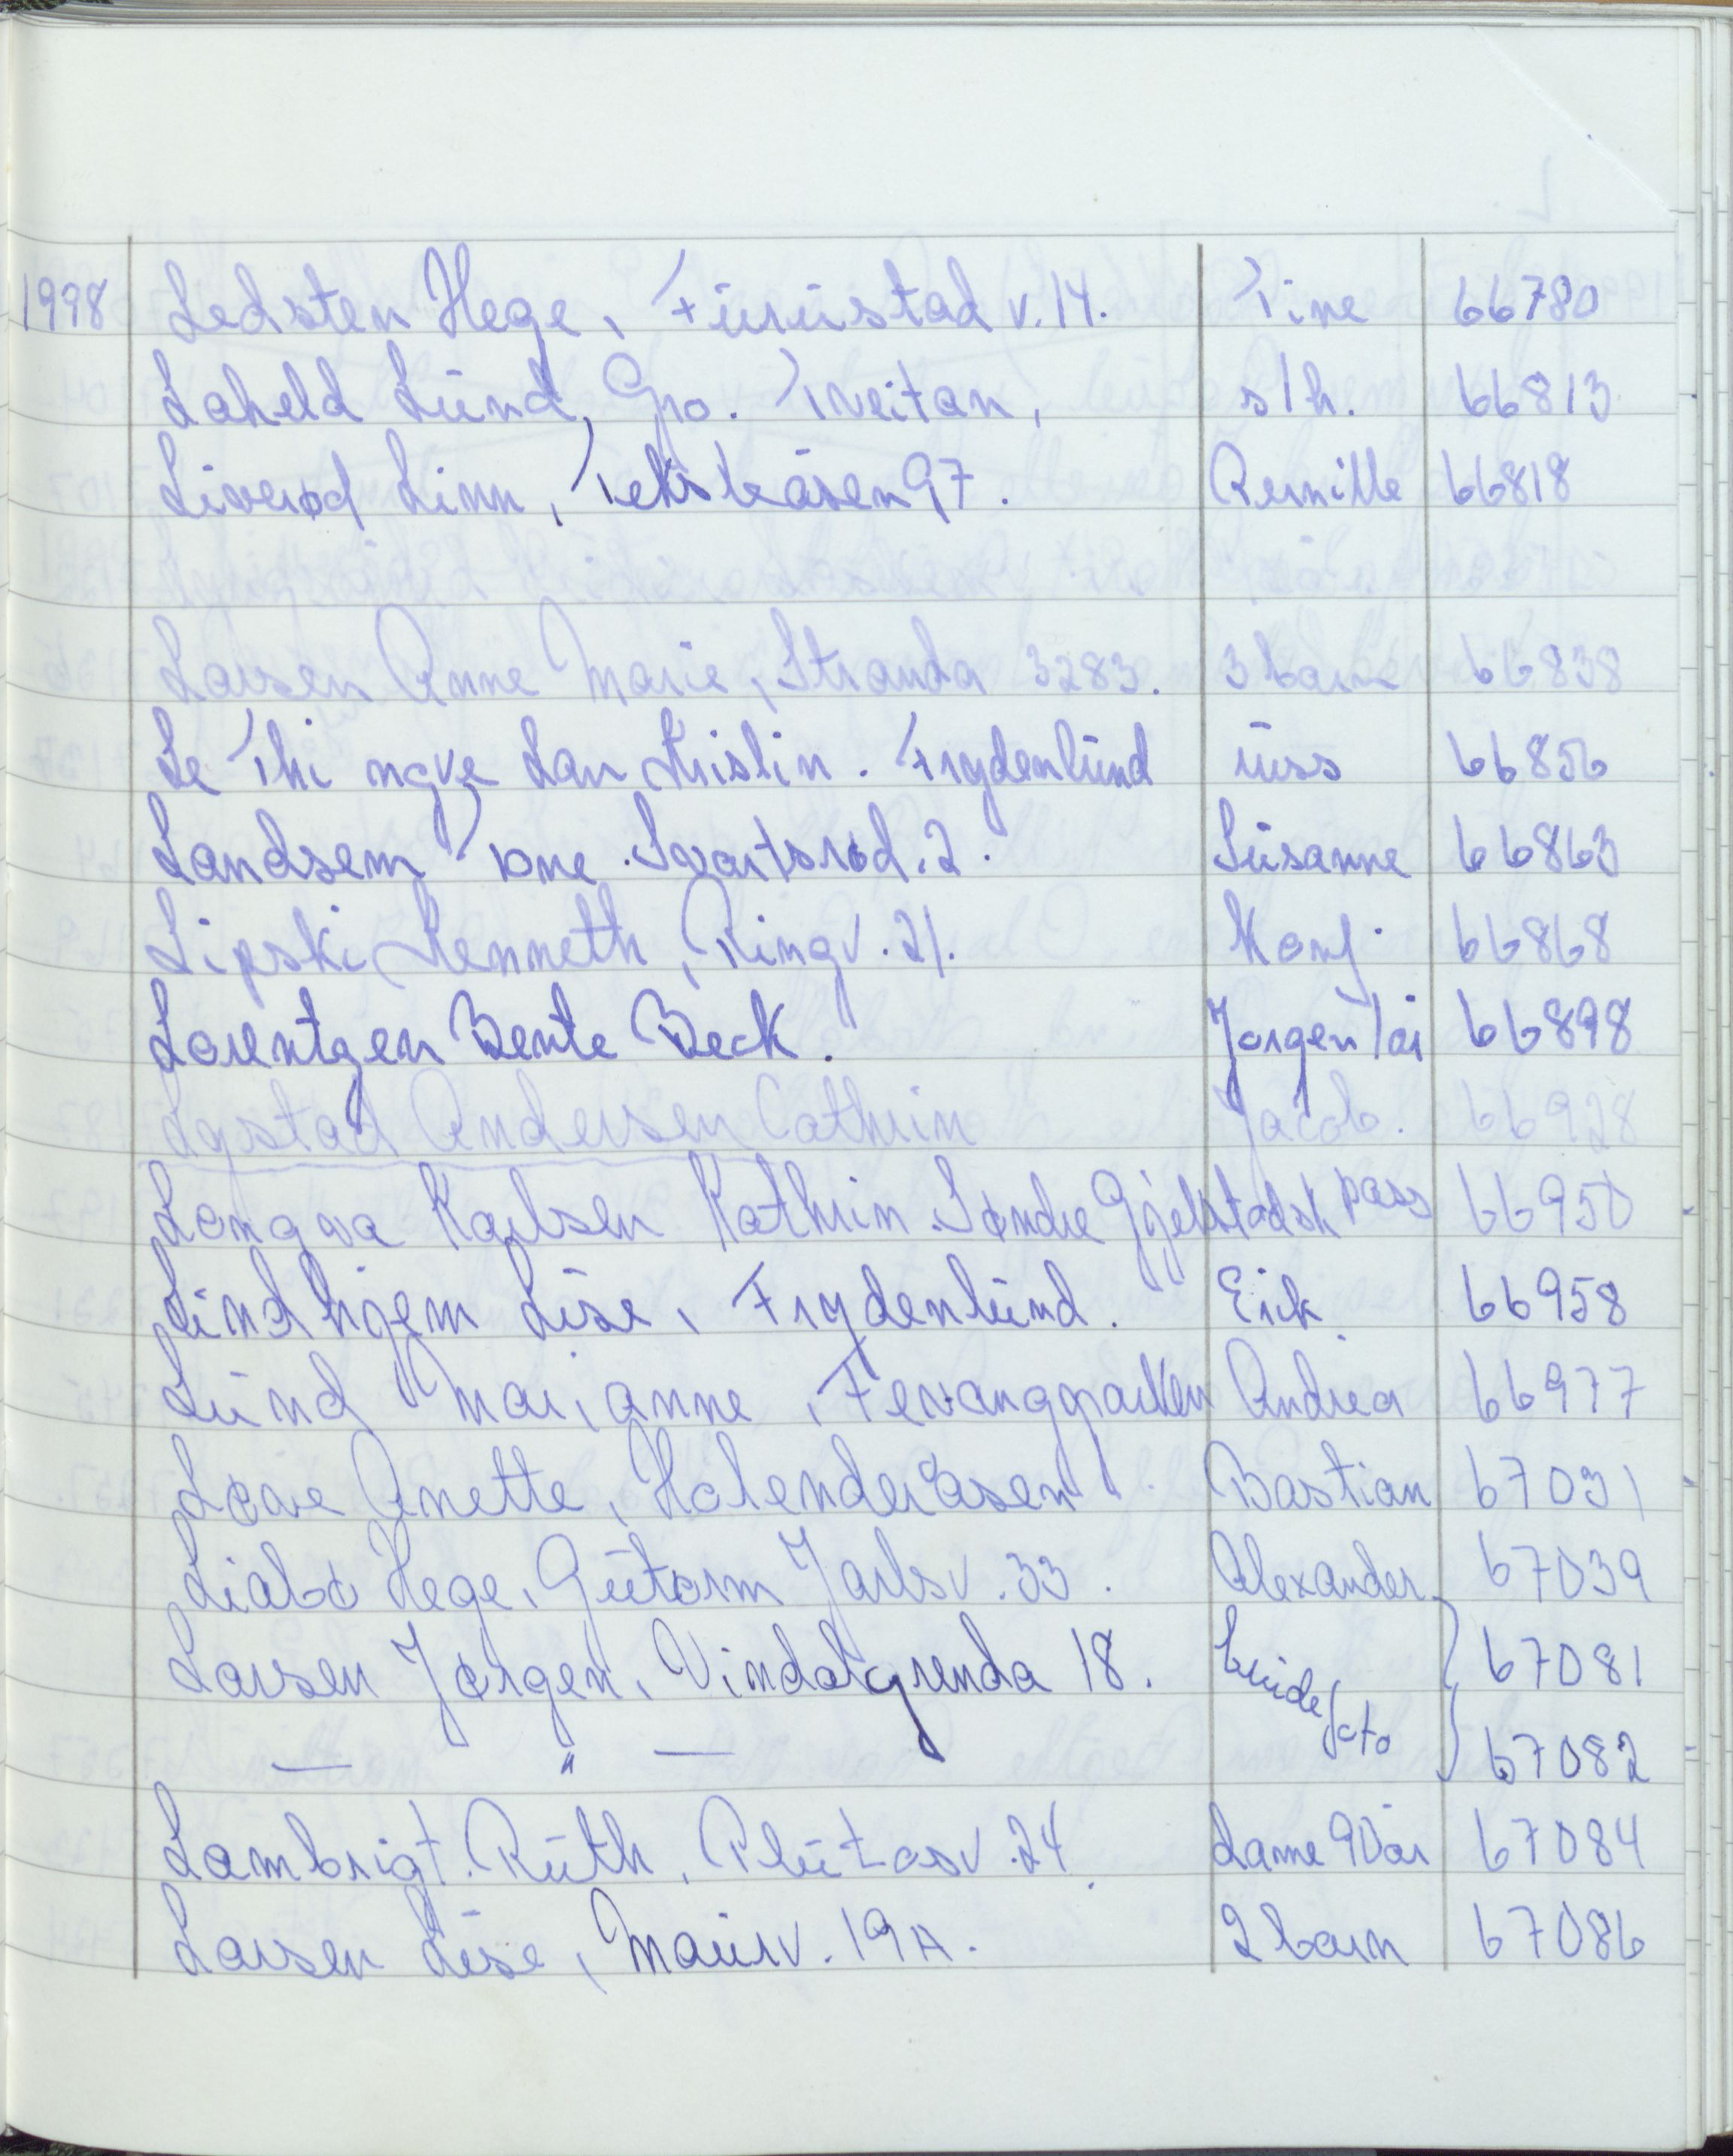 1998 Ledsten Hege, Furustad v. 14. Tine 66780
Laheld Lund, Gro. Tveitan, s/h. 66813
Liverød Linn, Teksleåsen 97. Pernille 66818
Larsen Anne Marie, Stranda 3283. 3 barn 66838
Le Thi ngve Lan Kristin. Frydenlund uss 66856
Landsem Tone. Svartsrød. 2. Susanne 66863
Lipski Kenneth, Ringv. 21. Konf. 66868
Lorentzen Bente Beck. Jørgen 1 år 66898
Lystad Andersen Cathrin Jacob. 66928
Longva Karlsen Kathrin. Søndre Gjekstad sk pass 66950
Lindhjem Lise, Frydenlund. Eirik 66958
Lund Marianne, Fevangparken Andrea 66977
Løve Anette, Holenderåsen 1. Bastian 67031
Liabø Hege, Guttorm Jarlsv. 33. Alexander 67039
Larsen Jørgen, Vindalgrenda 18. brude 67081
— " — foto 67082
Lambrigt. Ruth, Plutosv. 24. dame 90 år 67084
Larsen Lise, Maurv. 19A. 2 barn 67086